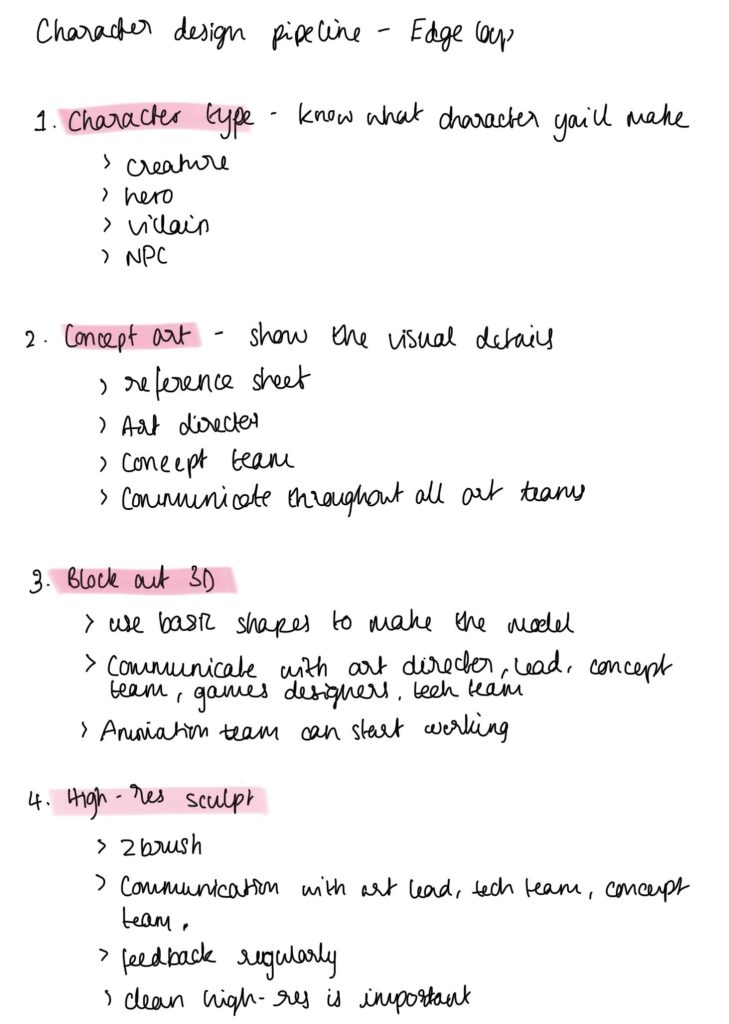 Character design pipeline - Edge loop
1. Character type - know what character you'll make
> creature
> hero
> villain
> NPC
2. Concept art - show the visual details
> reference sheet
> Art director
> Concept team
> Communicate throughout all art teams
3. Block out 3D
> use basic shapes to make the model
> Communicate with art director, lead, concept
team, games designers, tech team
> Animation team can start working
4. High-res sculpt
> Zbrush
> Communication with art lead, tech team, concept
team.
> feedback regularly
> clean high-res is important